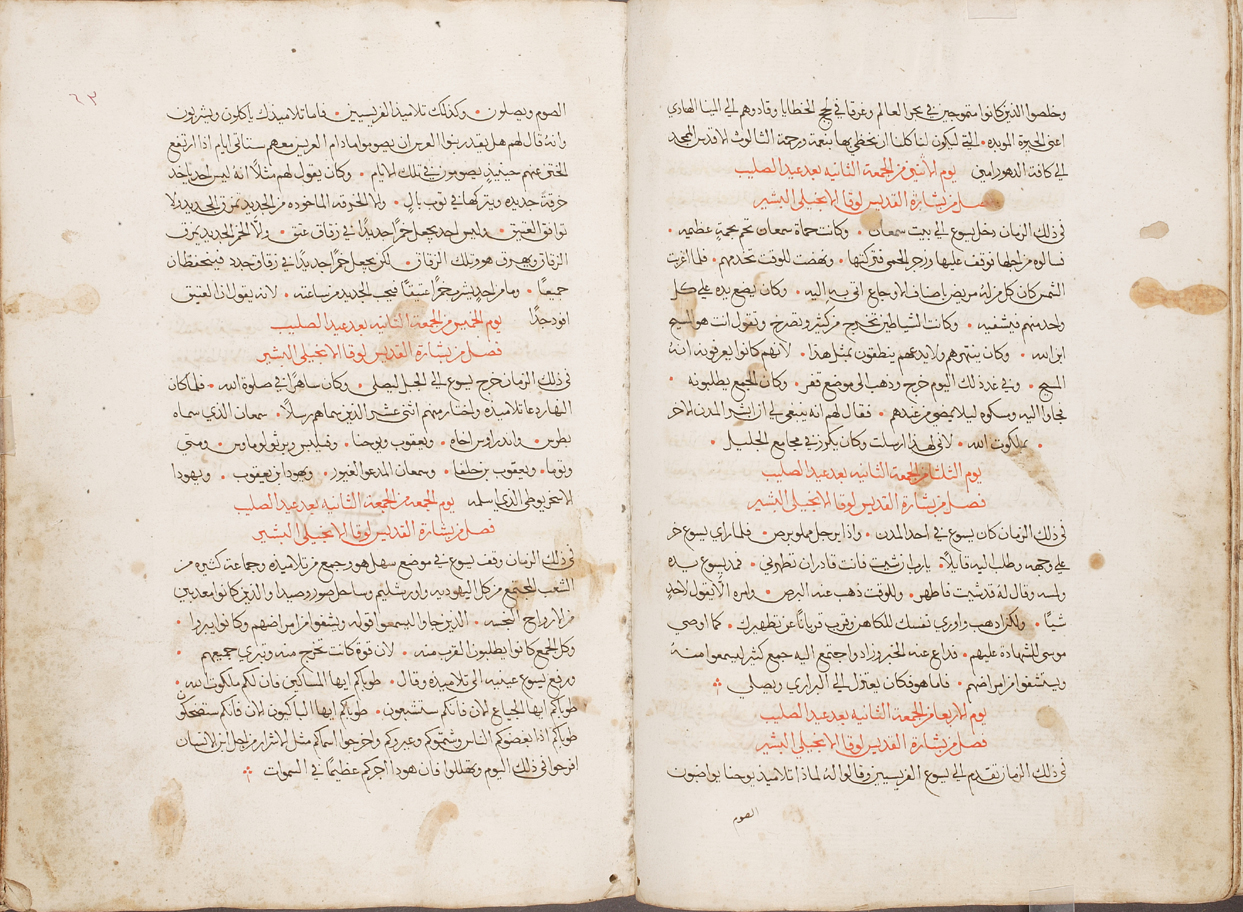 وخلصوا الذين كانوا متموجين في بحر العالم وغرقا في لجج الخطايا وقادوهم الى المينا الهادي
اعني الحيوة الموبده • التي ليكون لنا كلنا ان نحظي بها بنعمة ورحمة الثالوث الاقدس الممجد
الى كافة الدهور امين يوم الاثنين من الجمعة الثانيه بعد عيد الصليب
فصل من بشارة القديس لوقا الانجيلي البشير
في ذلك الزمان دخل يسوع الى بيت سمعان • وكانت حماة سمعان تحم بحمة عظيمه •
فسالوه من اجلها فوقف عليها وزجر الحمى فتركتها • ونهضت للوقت تخدمهم • فلما غربت
الشمس كان كل من له مريض باصناف الاوجاع اتى به اليه • وكان يضع يده على كل
واحد منهم فيشفيه • وكانت الشياطين تخرج من كثير وتصرخ وتقول انت هو المسيح
ابن الله • وكان ينتهرهم ولا يدعهم ينطقون بمثل هذا • لانهم كانوا يعرفونه انه
المسيح • وفي غد ذلك اليوم خرج وذهب الى موضع قفر • وكان الجمع يطلبونه •
فجاوا اليه ومسكوه ليلا يمضي من عندهم • فقال لهم انه ينبغي لي ان ابشر المدن الاخر
• بملكوت الله • لاني لهذا ارسلت وكان يكرز في مجامع الجليل •
يوم الثلثا من الجمعة الثانيه بعد عيد الصليب
فصل من بشارة القديس لوقا الانجيلي البشير
في ذلك الزمان كان يسوع في احد المدن • واذا برجل مملو برص • فلما راي يسوع خر
على وجهه وطلب اليه قايلاً • يا رب ان شيت فانت قادر ان تطهرني • فمد يسوع يده
ولمسه وقال له قد شيت فاطهر • وللوقت ذهب عنه البرص • وامره الا يقول لاحدٍ
شياً • ولكن اذهب واوري نفسك للكاهن وقرب قرباناً عن تطهيرك • كما اوصي
موسى للشهادة عليهم • فذاع عنه الخبر وزادوا اجتمع اليه جميع كثير ليسمعوا منه
ويستشفوا من امراضهم • فاما هو فكان يعتزل الى البراري ويصلي
يوم الاربعا من الجمعة الثانيه بعد عيد الصليب
فصل من بشارة القديس لوقا الانجيلي البشير
في ذلك الزمان تقدم الى يسوع الفريسيين وقالوا له لماذا تلاميذ يوحنا يواضبون
الصوم
٦٣
الصوم ويصلون • وكذلك تلاميذ الفريسيين • فاما تلاميذك ياكلون ويشربون
وانه قال لهم هل يقدر بنوا العرس ان يصوموا ما دام العريس معهم ستاتي ايام اذا ارتفع
الختن عنهم حينيذٍ يصومون في تلك الايام • وكان يقول لهم مثلاً انه ليس احد ياخذ
خرقة جديده ويتركها في ثوب بالٍ • والا الخرقه الماخوذه من الجديد تمزق الجديد ولا
توافق العتيق • وليس احد يجعل خمراً جديداً في زقاق عتق • والّا الخمر الجديد يمزق
الزقاق ويهرق هو وتلك الزقاق • لكن يجعل خمراً جديداً في زقاق جدد فينحفظان
جميعاً • وما من احدٍ يشرب خمراً عتيقاً فيحب الجديد من ساعته • لانه يقول ان العتيق
اجود جدًا يوم الخميس من الجمعة الثانيه بعد عيد الصليب
فصل من بشارة القديس لوقا الانجيلي البشير
في ذلك الزمان خرج يسوع الى الجبل ليصلي • وكان ساهراً في صلوة الله • فلما كان
النهار دعا تلاميذه واختار منهم اثني عشر الذين سماهم رسلاً • سمعان الذي سماه
بطرس • واندراوس اخاه • ويعقوب ويوحنا • وفيلبس وبرثولوماوس • ومتى
وتوما • ويعقوب بن حلفا • وسمعان المدعو الغيور • ويهودا بن يعقوب • ويهودا
الاسخريوطي الذي اسلمه يوم الجمعه من الجمعة الثانيه بعد عيد الصليب
فصل من بشارة القديس لوقا الانجيلي البشير
في ذلك الزمان وقف يسوع في موضع سهل هو وجمع من تلاميذه وجماعة كثيره من
الشعب المجتمع من كل اليهوديه واورشليم وساحل صور وصيدا والذين كانوا معذبين
من الارواح النجسه • الذين جاوا ليسمعوا قوله ويشفوا من امراضهم وكانوا يبروا •
وكل الجمع كانوا يطلبون القرب منه • لان قوة كانت تخرج منه وتبري جميعهم •
ورفع يسوع عينيه الى تلاميذه وقال • طوباكم ايها المساكين فان لكم ملكوت الله •
طوباكم ايها الجياع الان فانكم ستشبعون • طوباكم ايها الباكيون الان فانكم ستضحكون
طوباكم اذا بغضوكم الناس وشتموكم وعيروكم واخرجوا اسماكم مثل الاشرار من اجل ابن الانسان
افرحوا في ذلك اليوم وتهللوا فان هوذا اجركم عظيمًا في السموات